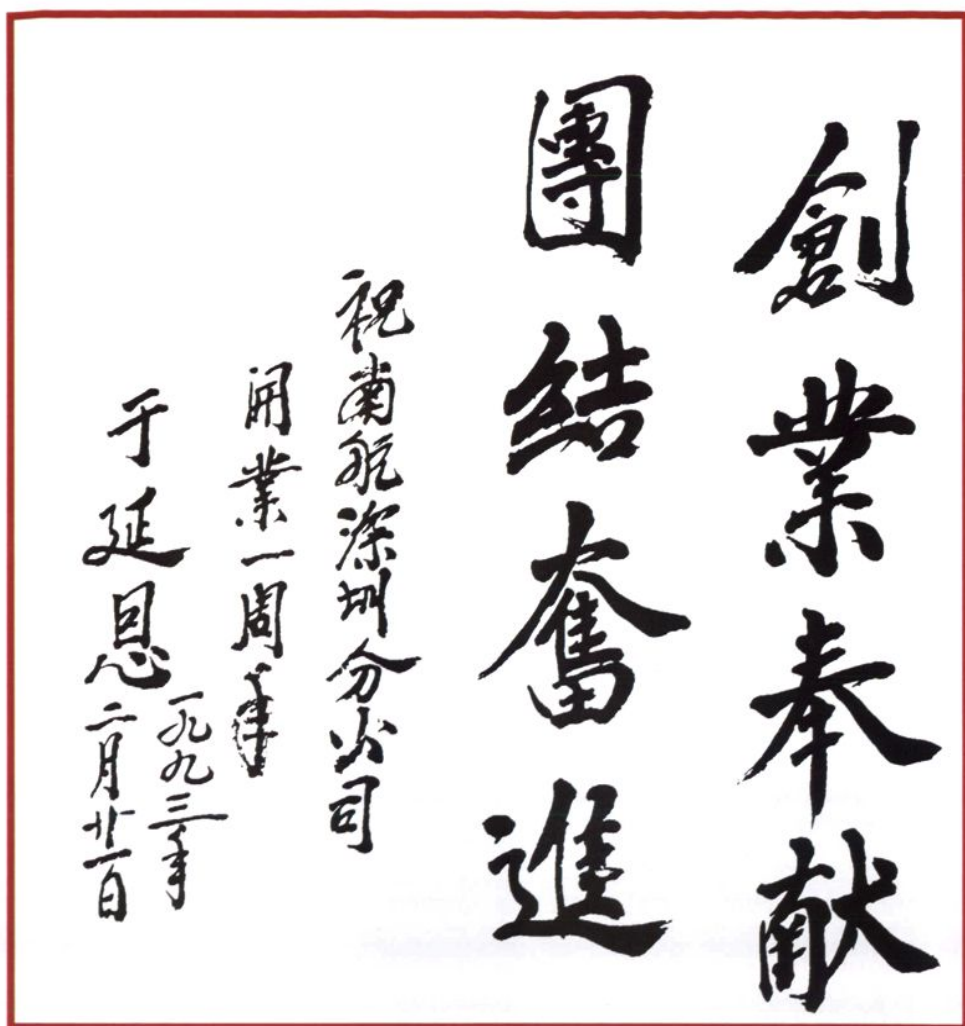 創業奉献
團結奮進
祝南航深圳分公司
開業一周年
于延恩
一九九三年
二月廿一日